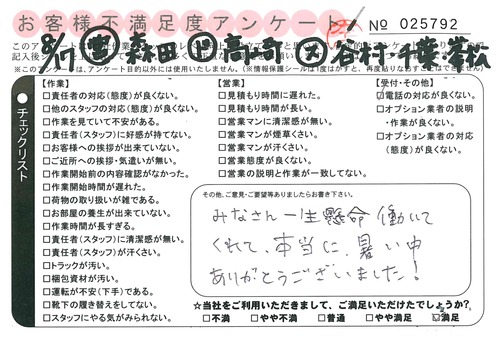 お客様不満足度アンケート
№ 025792
8/17
森田
高
谷村・千葉・
【作業】
□責任者の対応(態度)が良くない。
□他のスタッフの対応(態度)が良くない。
□作業を見ていて不安がある。
□責任者(スタッフ)に好感が持てない。
□お客様への挨拶が出来ていない。
□ご近所への挨拶・気遣いが無い。
□作業開始前の内容確認がなかった。
□作業開始時間が遅れた。
□荷物の取り扱いが雑である。
□お部屋の養生が出来ていない。
□作業時間が長すぎる。
□責任者(スタッフ)に清潔感が無い。
□責任者(スタッフ)が汗くさい。
□トラックが汚い。
□梱包資材が汚い。
□運転が不安(下手)である。
□靴下の履き替えをしてない。
□スタッフにやる気がみられない。
チェックリスト
【営業】
□見積もり時間に遅れた。
□見積もり時間が長い。
□営業マンに清潔感が無い。
□営業マンが煙草くさい。
□営業マンが汗くさい。
□営業態度が良くない。
□営業の説明と作業が一致してない。
【受付・その他】
□電話の対応が良くない。
□オプション業者の説明
・作業が良くない。
□オプション業者の対応
(態度)が良くない。
その他、ご意見・ご要望等ありましたらお書き下さい。
みなさん一生懸命働いて
くれて、本当に、暑い中
ありがとうございました!
☆当社をご利用いただきまして、ご満足いただけたでしょうか?
□不満 □やや不満 □普通 □やや満足 ☑満足